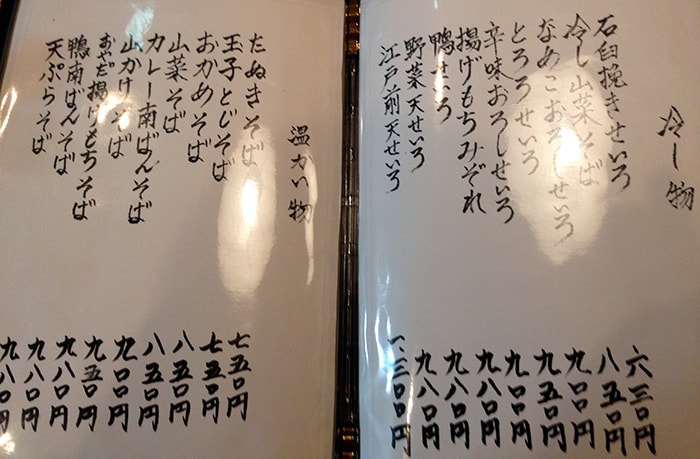 冷し物
石臼挽きせいろ 六三〇円
冷し山菜そば 八五〇円
なめこおろしせいろ 九〇〇円
とろろせいろ 九五〇円
辛味おろしせいろ 九〇〇円
揚げもちみぞれ 九八〇円
鴨せいろ 九八〇円
野菜天せいろ 九八〇円
江戸前天せいろ 一、三〇〇円
温かい物
たぬきそば 七五〇円
玉子とじそば 七五〇円
おかめそば 八五〇円
山菜そば 八五〇円
カレー南ばんそば 九〇〇円
山かけそば 九五〇円
揚げもちそば 九八〇円
鴨南ばんそば 九八〇円
天ぷらそば 九八〇円